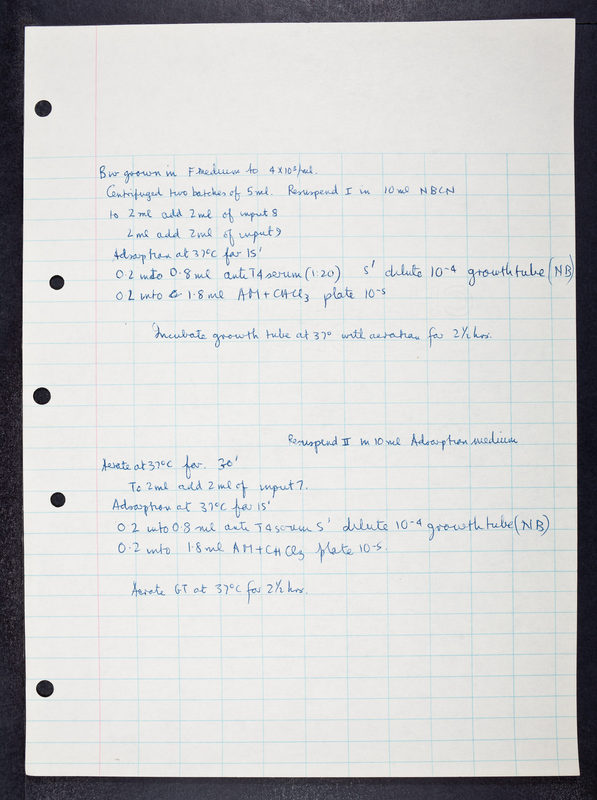 Bw grown in F medium to 4 x 10⁸/ml.
Centrifuged two batches of 5 ml. Resuspend I in 10 ml NBCN
To 2 ml add 2 ml of input 8
2 ml add 2 ml of input 9
Adsorption at 37°C for 15'
0.2 into 0.8 ml anti T4 serum (1:20) 5' dilute 10⁻⁴ growth tube (NB)
0.2 into 1.8 ml AM + CHCl₃ plate 10⁻⁵
Incubate growth tube at 37° with aeration for 2½ hrs.
Resuspend II in 10 ml Adsorption medium
Aerate at 37°C for 30'
To 2 ml add 2 ml of input 7.
Adsorption at 37°C for 15'
0.2 into 0.8 ml anti T4 serum 5' dilute 10⁻⁴ growth tube (NB)
0.2 into 1.8 ml AM + CHCl₃ plate 10⁻⁵.
Aerate GT at 37°C for 2½ hrs.